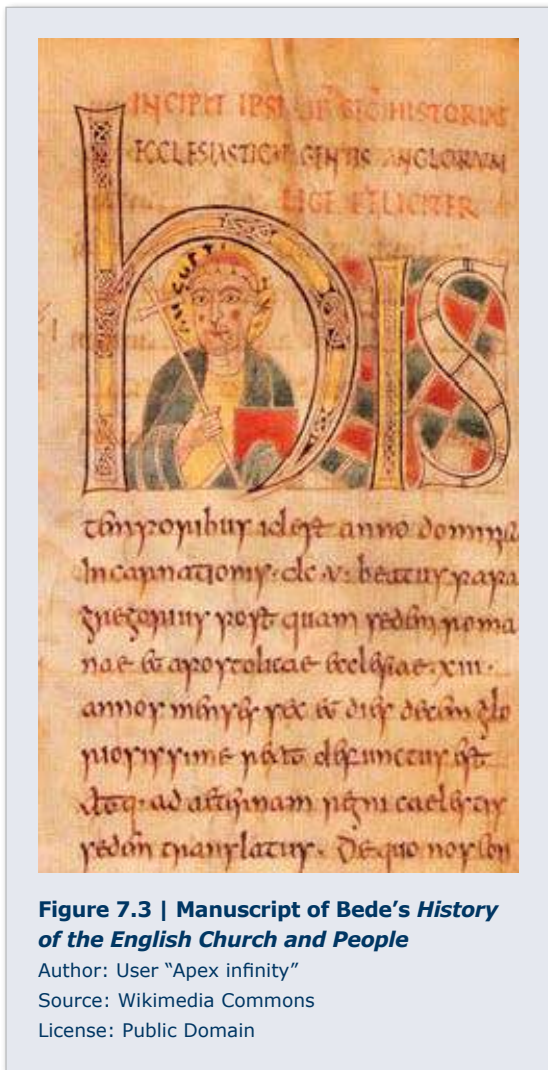 INCIPIT
ECCLESIASTICAE GENTIS ANGLORUM
FELICITER
his
temporibus id est anno domini
incarnationis · dc · v · beatus papa
gregorius post quam sedem roma
nae et apostolicae ecclesiae · xiii ·
annos menses sex et dies decem glo
riosissime rexit defunctus est
atq · ad aeternam regni caelestis
sedem translatus · De quo nos con
Figure 7.3 | Manuscript of Bede’s History
of the English Church and People
Author: User “Apex infinity”
Source: Wikimedia Commons
License: Public Domain